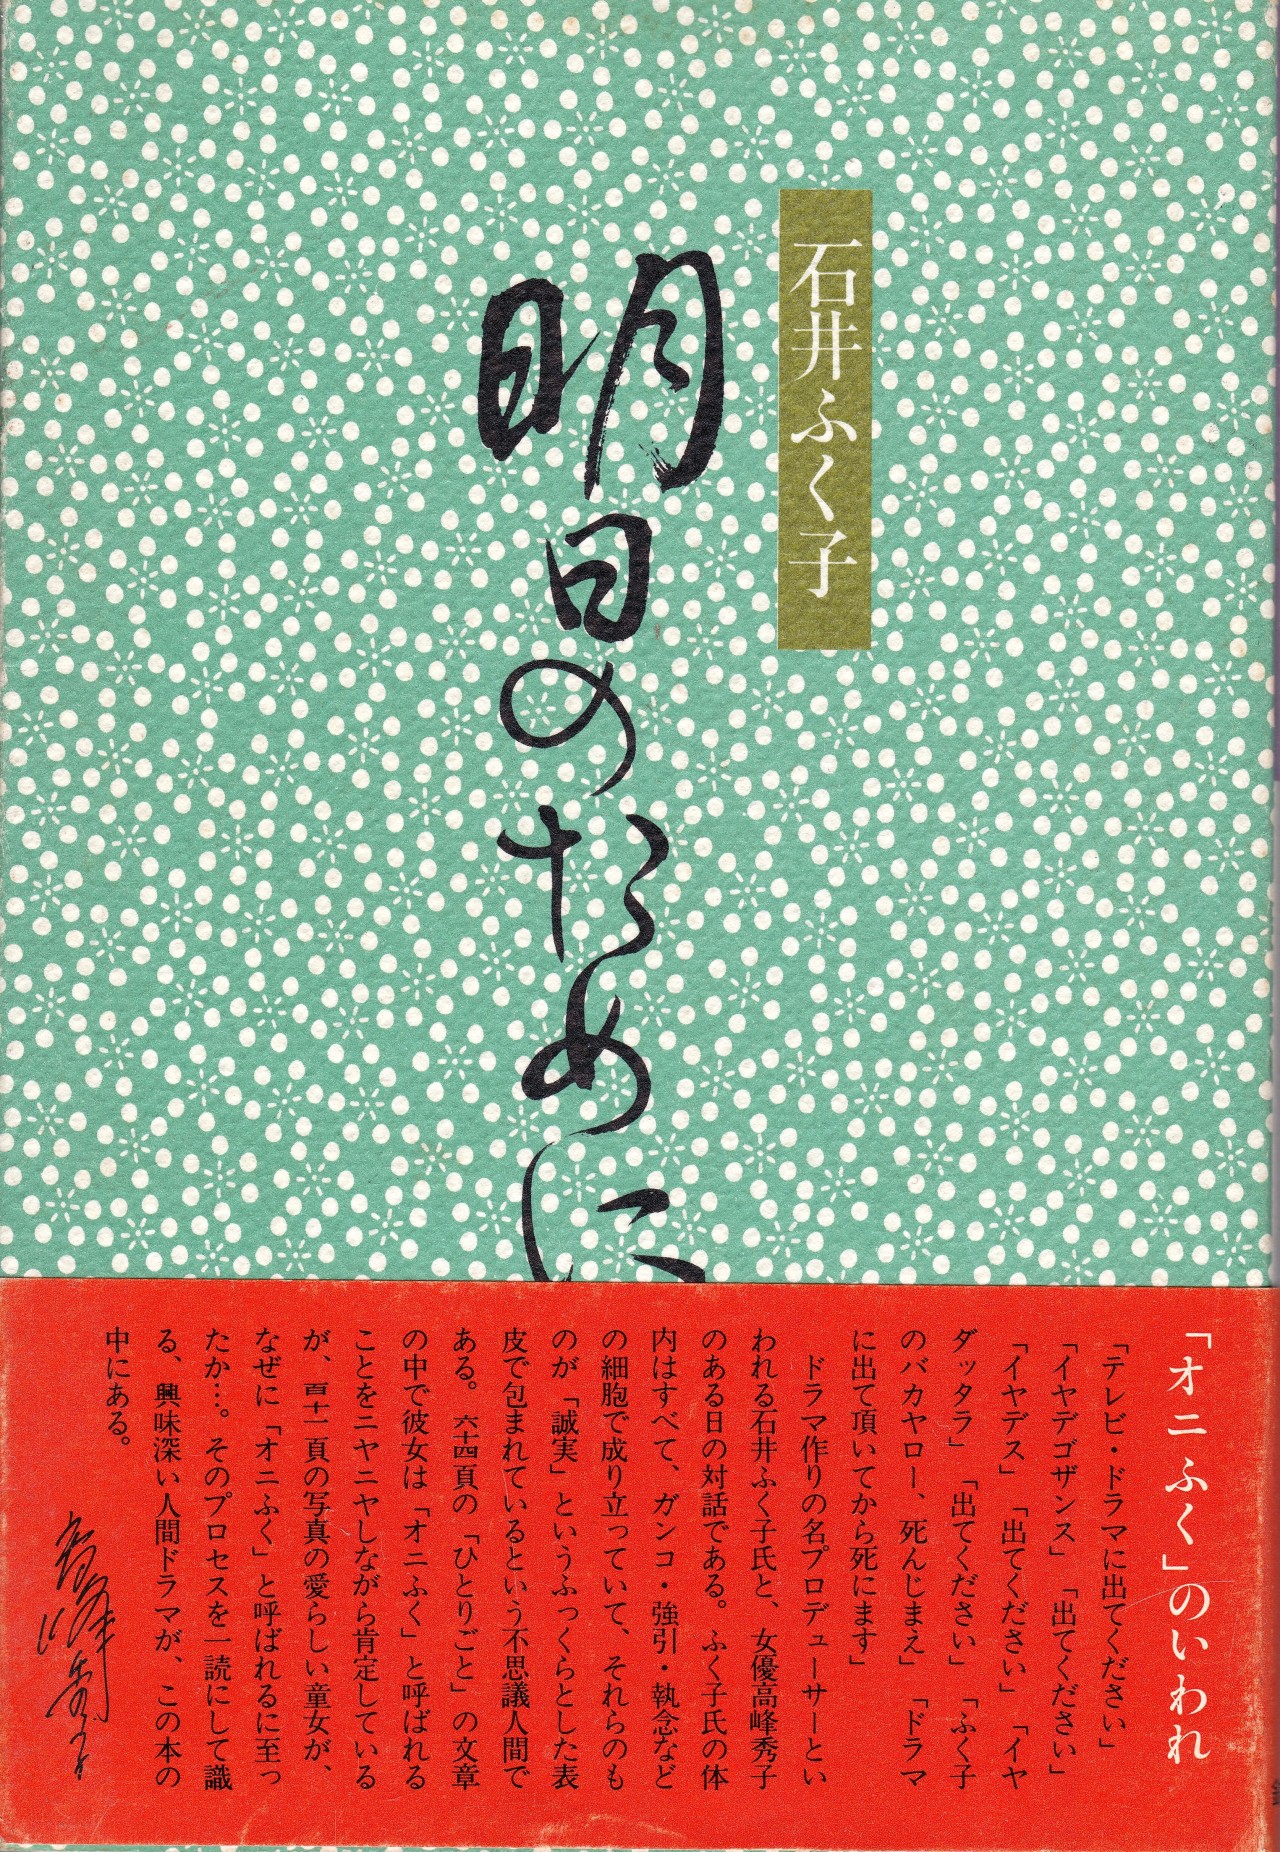 石井ふく子
明日のために
「オニふく」のいわれ
「テレビ・ドラマに出てください」
「イヤデゴザンス」「出てください」
「イヤデス」「出てください」「イヤ
ダッタラ」「出てください」「ふく子
のバカヤロー、死んじまえ」「ドラマ
に出て頂いてから死にます」
ドラマ作りの名プロデューサーとい
われる石井ふく子氏と、女優高峰秀子
のある日の対話である。ふく子氏の体
内はすべて、ガンコ・強引・執念など
の細胞で成り立っていて、それらのも
のが「誠実」というふっくらとした表
皮で包まれているという不思議人間で
ある。六十四頁の「ひとりごと」の文章
の中で彼女は「オニふく」と呼ばれる
ことをニヤニヤしながら肯定している
が、百十一頁の写真の愛らしい童女が、
なぜに「オニふく」と呼ばれるに至っ
たか…。そのプロセスを一読にして識
る、興味深い人間ドラマが、この本の
中にある。
高峰秀子